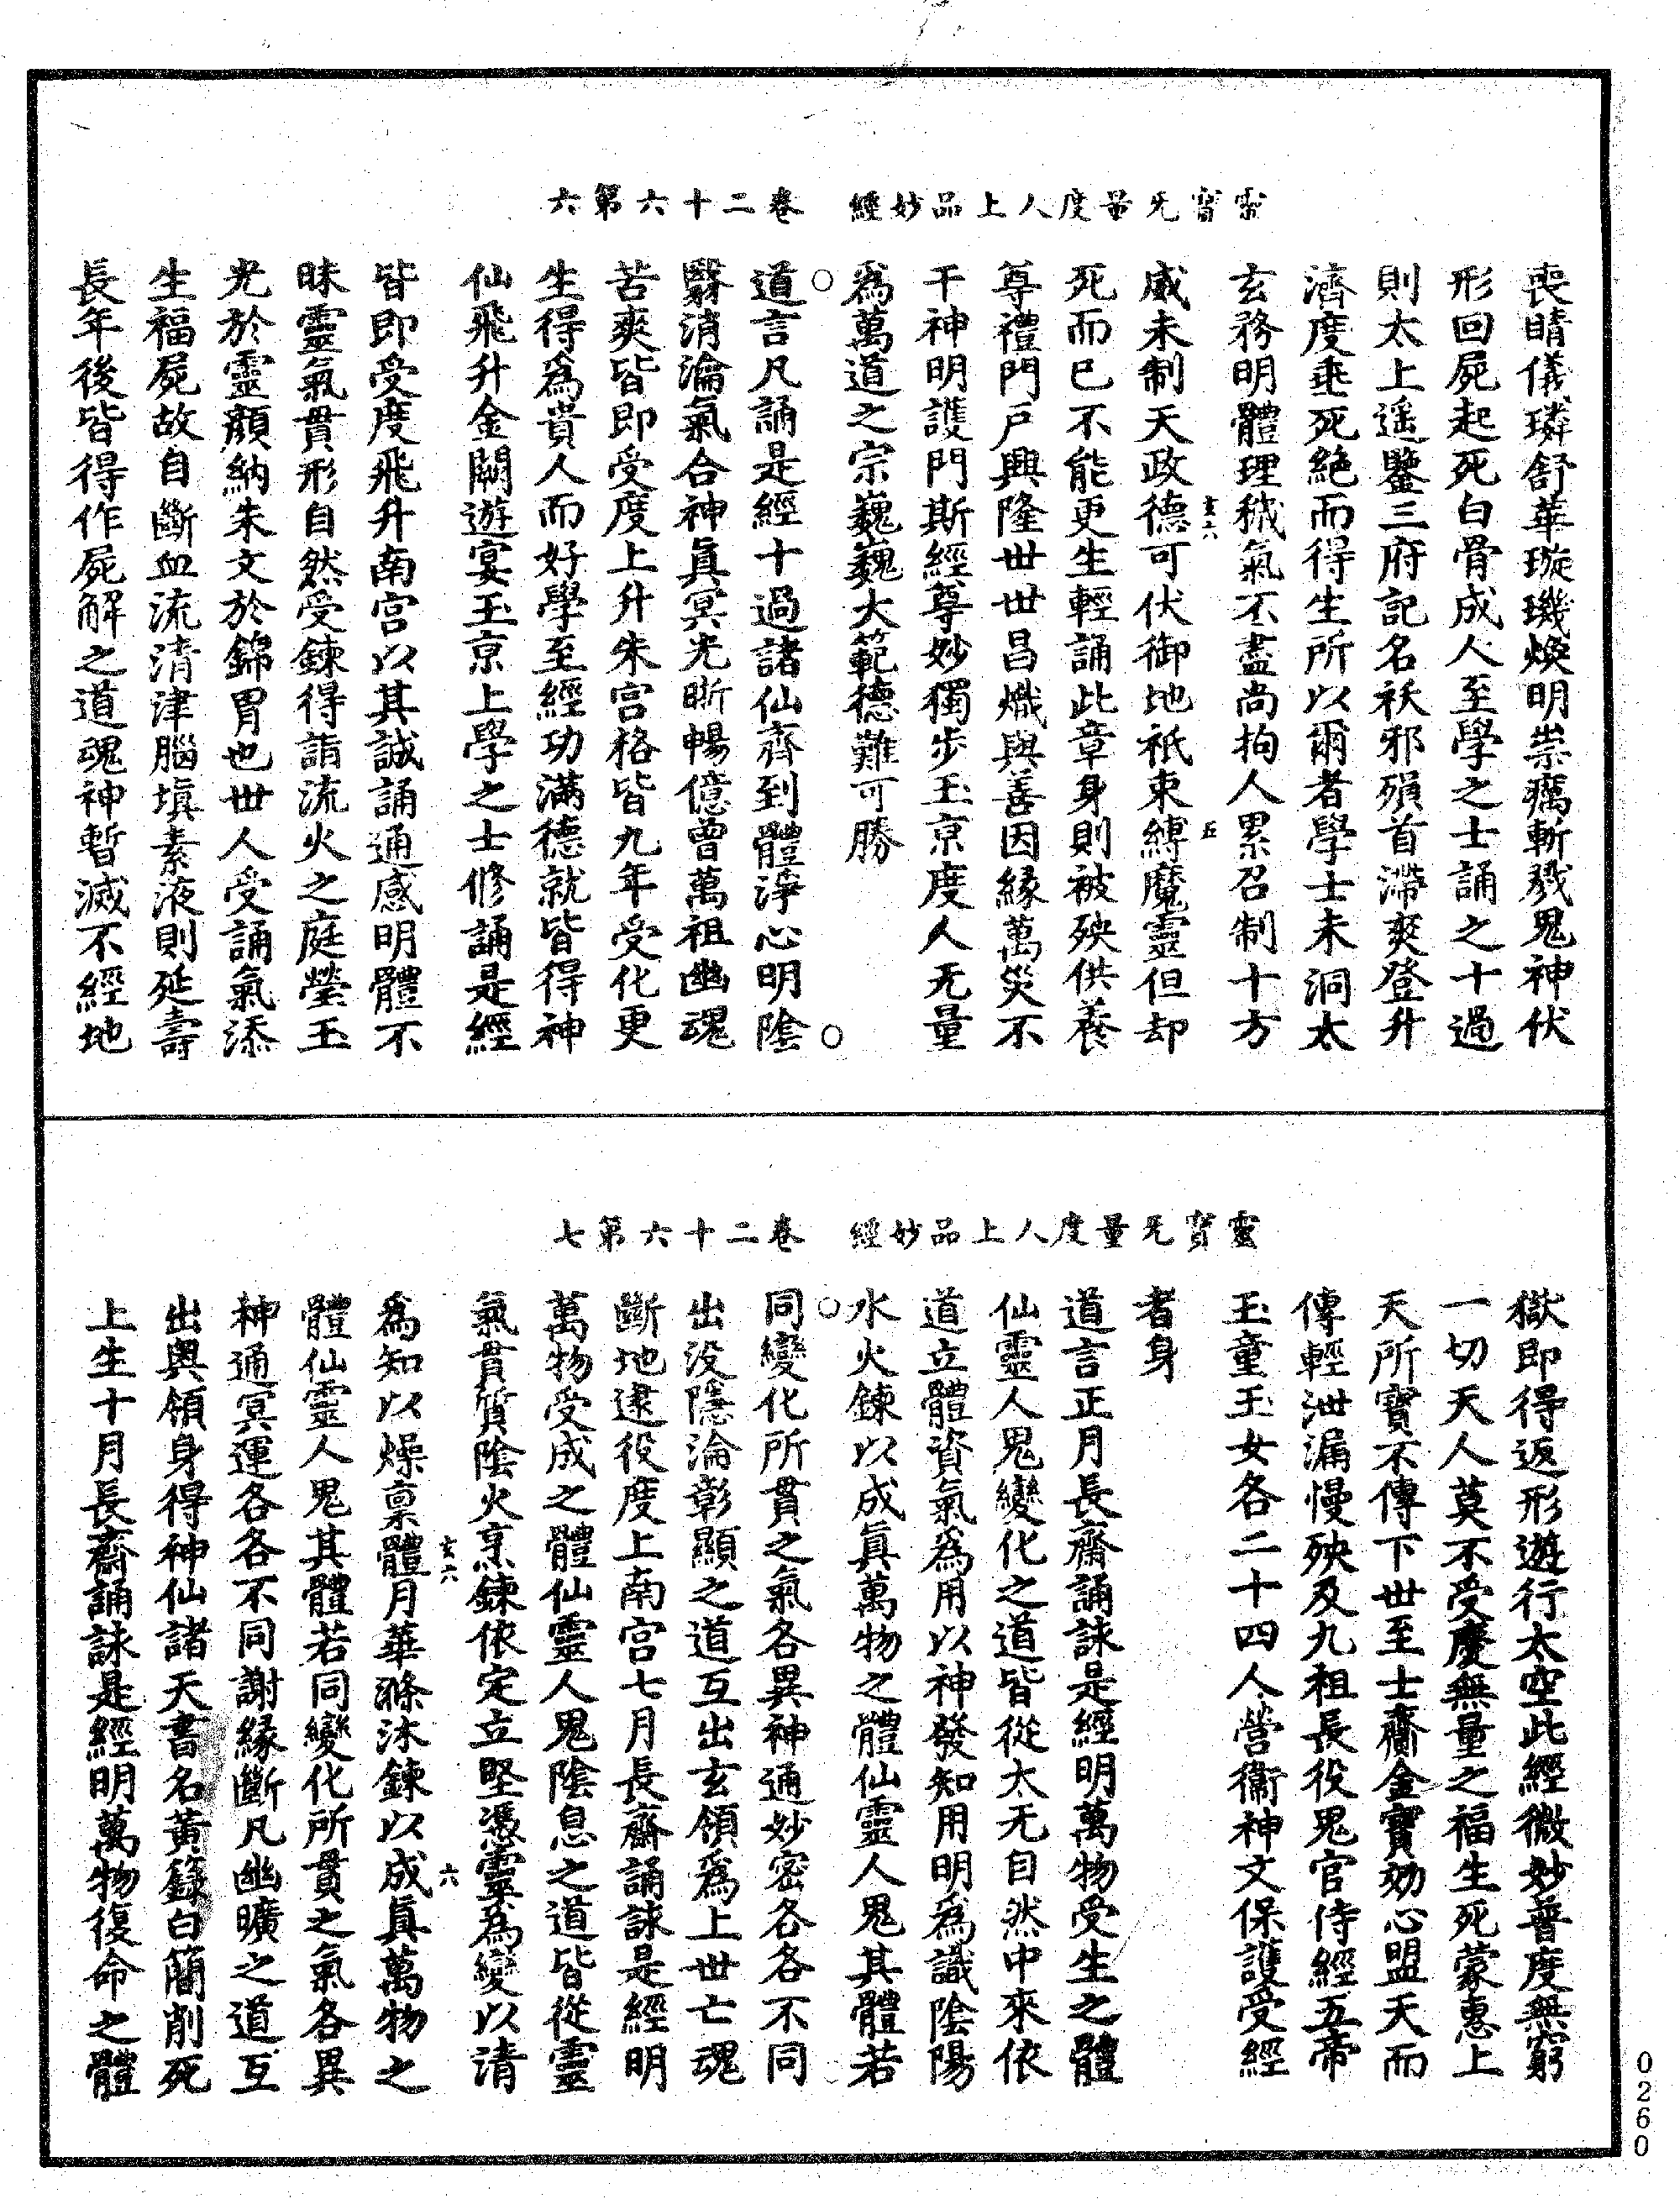 靈寶无量度人上品妙經　卷二十六第六
喪睛儀璘舒華璇璣煥明祟癘斬戮鬼神伏
形回屍起死白骨成人至學之士誦之十過
則太上遥鑒三府記名祅邪殞首滯爽登升
濟度垂死絶而得生所以爾者學士未洞太
玄務明體理穢氣不盡尚拘人累召制十方
威未制天政德可伏御地祇束縛魔靈但却
玄六　五
死而已不能更生輕誦此章身則被殃供養
尊禮門戶興隆世世昌熾與善因緣萬災不
干神明護門斯經尊妙獨步玉京度人无量
爲萬道之宗巍巍大範德難可勝
○
道言凡誦是經十過諸仙齊到體淨心明陰
○
翳消淪氣合神眞冥光晣暢億曾萬祖幽魂
苦爽皆即受度上升朱宫格皆九年受化更
生得爲貴人而好學至經功滿德就皆得神
仙飛升金闕遊宴玉京上學之士修誦是經
皆即受度飛升南宫以其誠誦通感明體不
昧靈氣貫形自然受鍊得詣流火之庭瑩玉
光於靈顔納朱文於錦胃也世人受誦氣添
生福屍故自斷血流清津腦塡素液則延壽
長年後皆得作屍解之道魂神暫滅不經地
靈寶无量度人上品妙經　卷二十六第七
獄即得返形遊行太空此經微妙普度無窮
一切天人莫不受慶無量之福生死蒙惠上
天所寶不傳下世至士齎金寶効心盟天而
傳輕泄漏慢殃及九祖長役鬼官侍經五帝
玉童玉女各二十四人營衞神文保護受經
者身
道言正月長齋誦詠是經明萬物受生之體
仙靈人鬼變化之道皆從太无自然中來依
道立體資氣爲用以神發知用明爲識陰陽
水火鍊以成眞萬物之體仙靈人鬼其體若
○
同變化所貫之氣各異神通妙密各各不同
出没隱淪彰顯之道互出玄領爲上世亡魂
斷地逮役度上南宫七月長齋誦詠是經明
萬物受成之體仙靈人鬼陰息之道皆從靈
氣貫質陰火烹鍊依定立堅憑靈爲變以清
爲知以燥禀體月華滌沐鍊以成眞萬物之
玄六　六
體仙靈人鬼其體若同變化所貫之氣各異
神通冥運各各不同謝緣斷凡幽曠之道互
出輿領身得神仙諸天書名黃籙白簡削死
上生十月長齋誦詠是經明萬物復命之體
0260